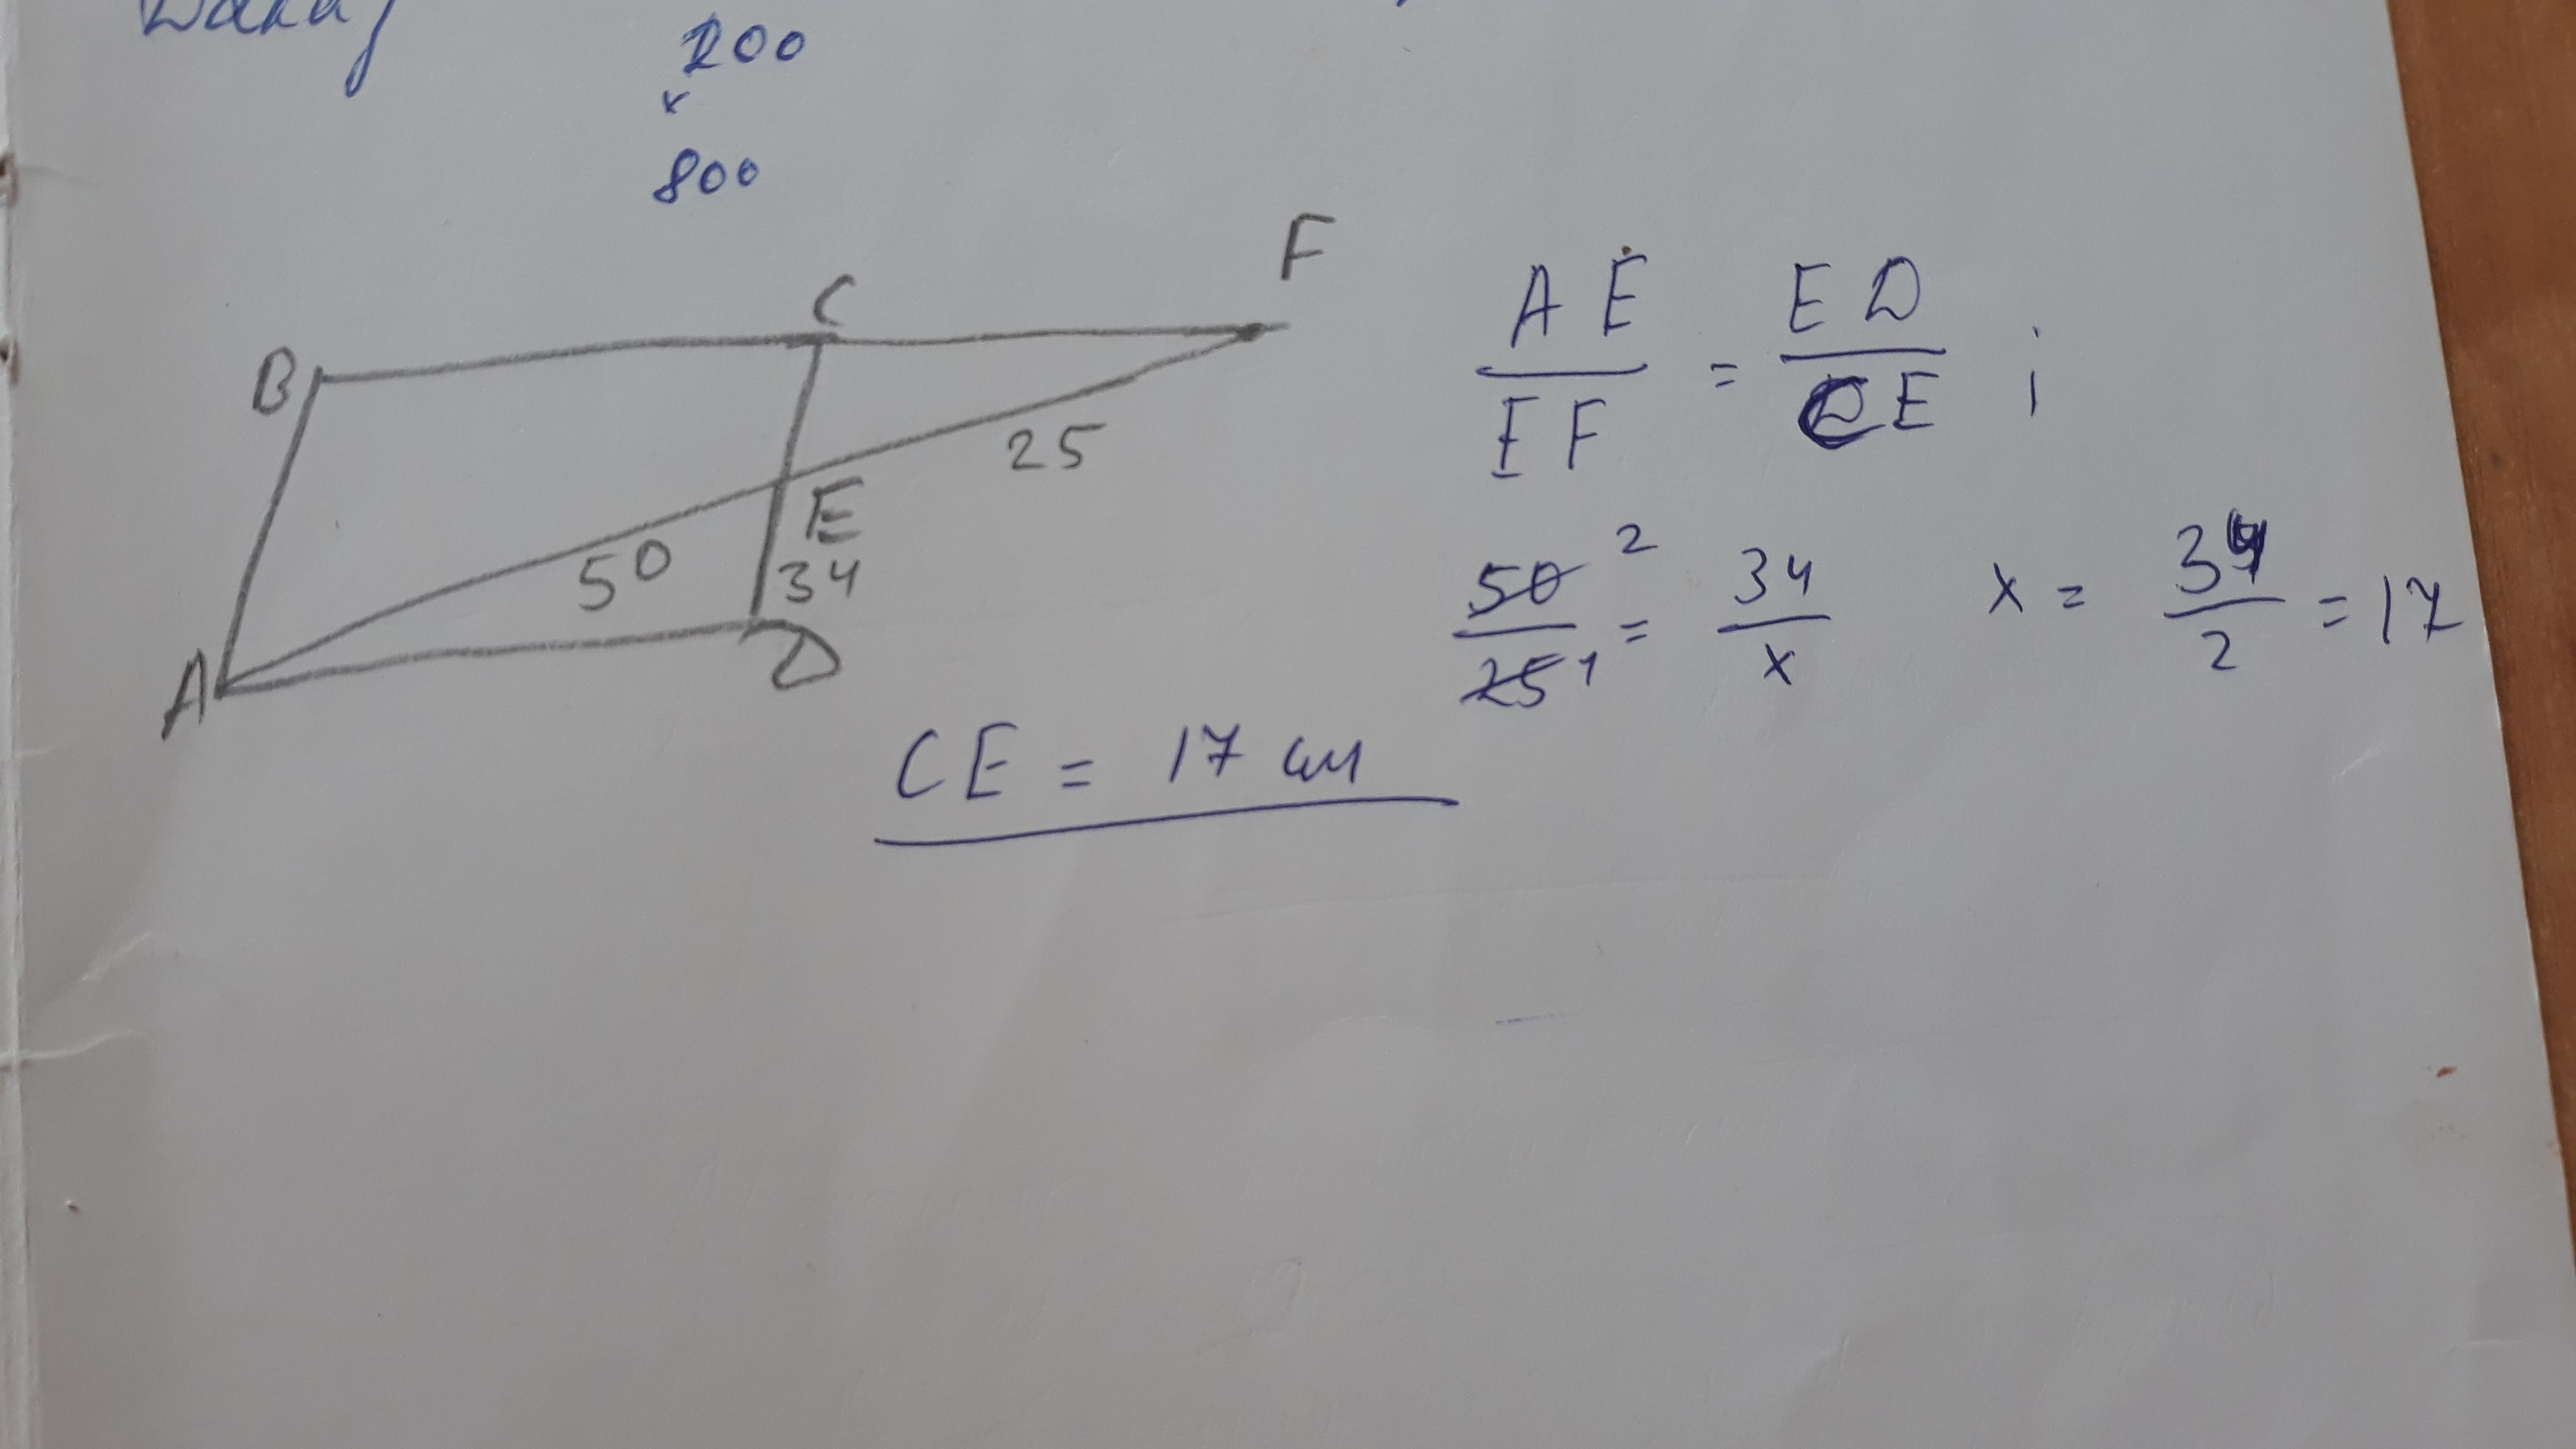 200
x
800
F
C
B
25
E
50
34
A
D
AE/EF = ED/CE ;
50 2/25 1 = 34/x x = 34/2 = 17
CE = 17 см